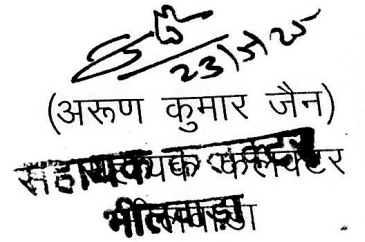 23/7/25
(अरूण कुमार जैन)
सहायक कलेक्टर
भीलवाड़ा